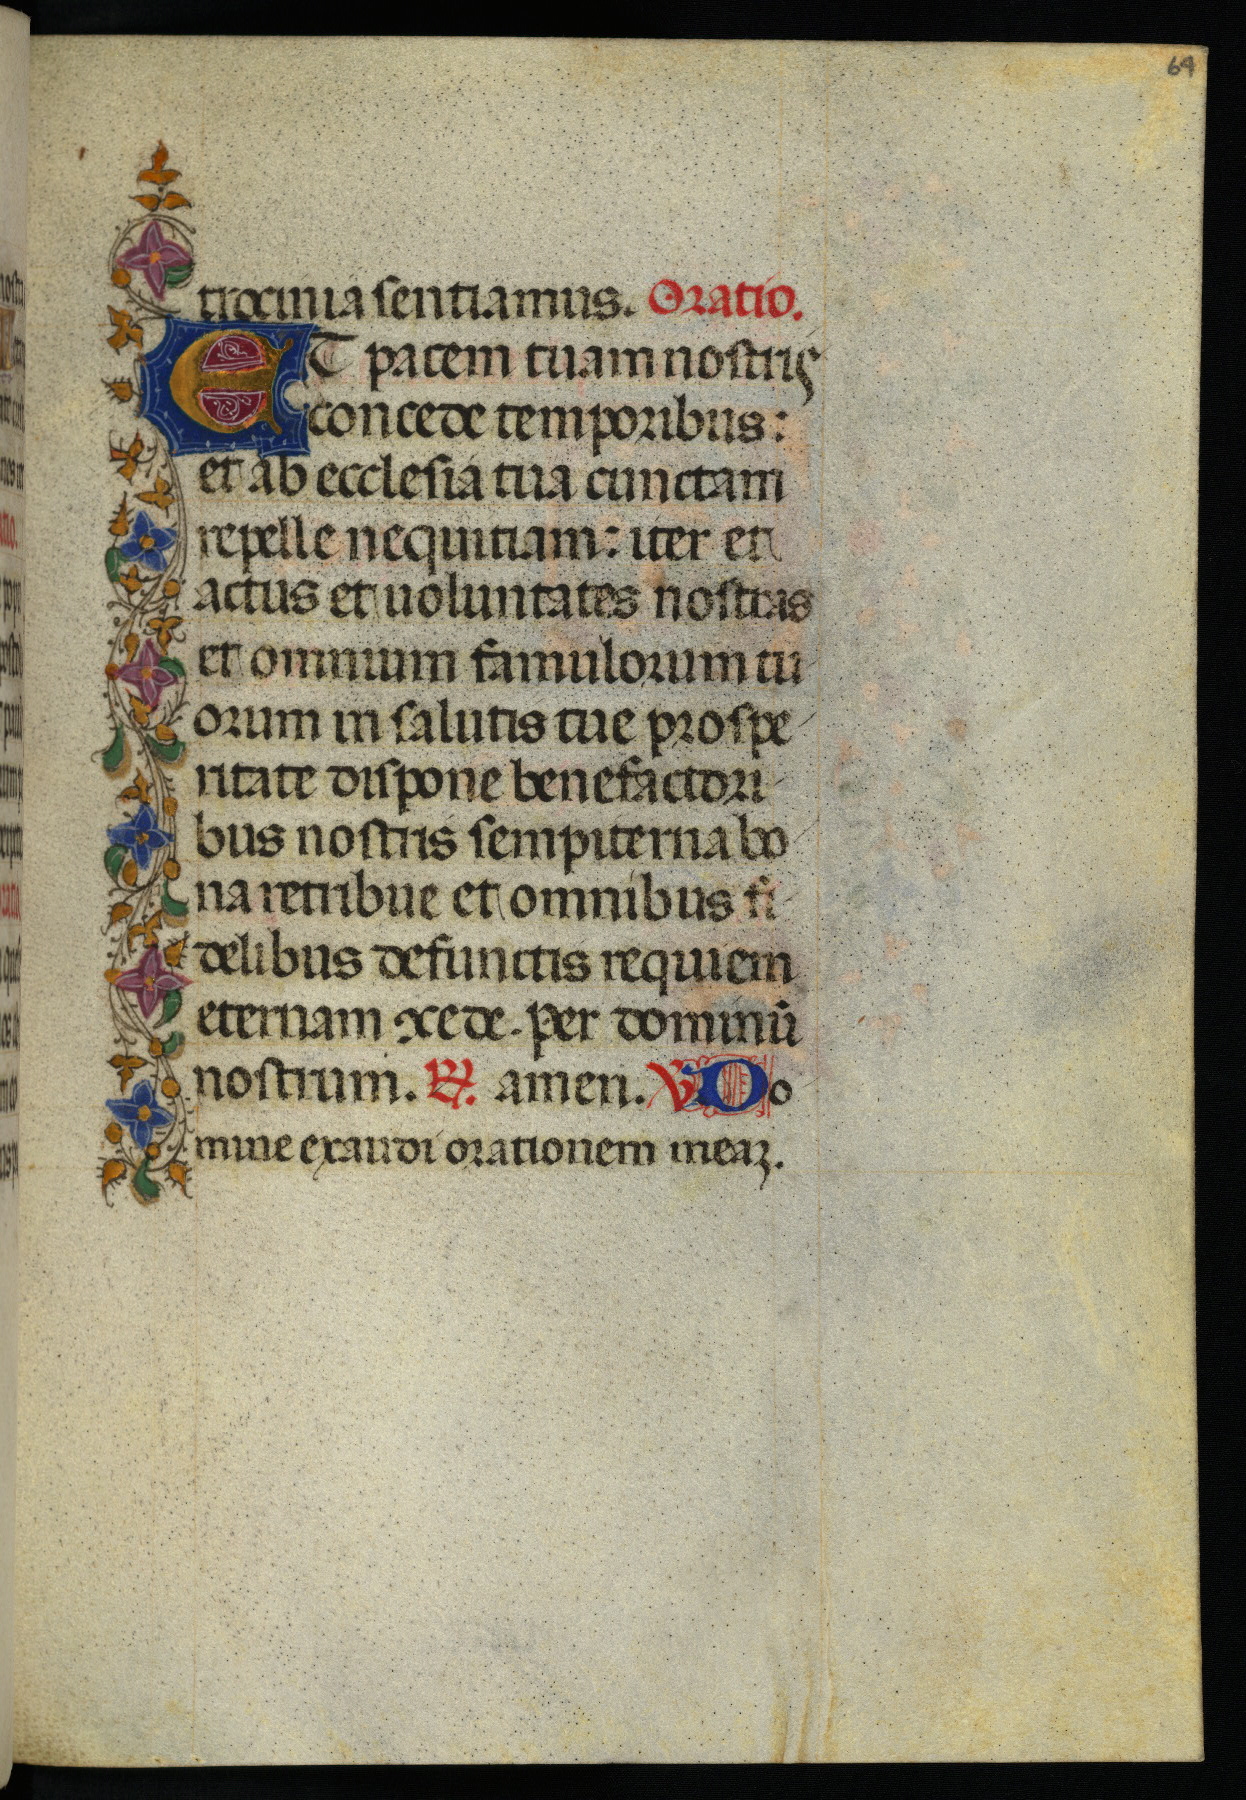 64
trocinia sentiamus. Oratio.
ET pacem tuam nostris
concede temporibus:
et ab ecclesia tua cunctam
repelle nequitiam: iter et
actus et uoluntates nostras
et omnium famulorum tu
orum in salutis tue prospe
ritate dispone benefactori
bus nostris sempiterna bo
na retribue et omnibus fi
delibus defunctis requiem
eternam ꝯcede. per dominū
nostrum. ℟. amen. V Do
mine exaudi orationem meaꝫ.